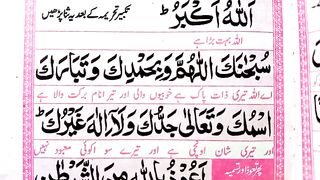 اَللّٰهُ اَكْبَرُ ط تکبیر تحریمہ کے بعد یہ ثنا پڑھیں
اللہ بہت بڑا ہے
سُبْحٰنَكَ اللّٰهُمَّ وَبِحَمْدِكَ وَتَبَارَكَ
اے اللہ تیری ذات پاک ہے خوبیوں والی اور تیرا نام برکت والا ہے
اسْمُكَ وَتَعَالٰی جَدُّكَ وَلَآ اِلٰهَ غَيْرُكَ ط
اور تیری شان اونچی ہے اور تیرے سوا کوئی معبود نہیں
پھر تعوذ اور تسمیہ اَعُوْذُ بِاللّٰهِ مِنَ الشَّيْطٰنِ